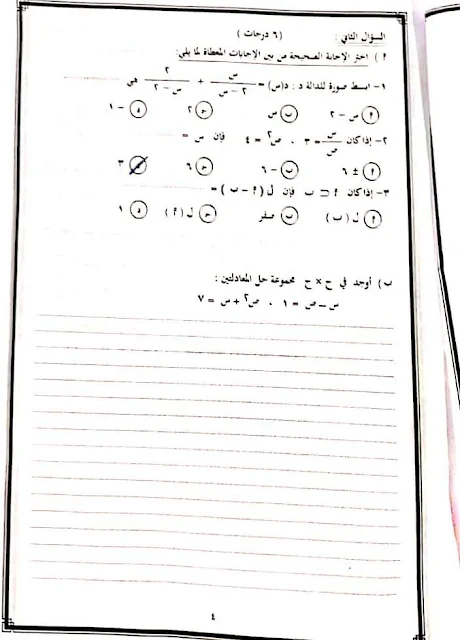 السؤال الثاني : (٦ درجات)
أ ) اختر الإجابة الصحيحة من بين الإجابات المعطاة لما يلي:
١- ابسط صورة للدالة د : د(س) = س / ٢ - س + ٢ / س - ٢ هي
أ س - ٢ ب س ج ٢ د - ١
٢- إذا كان س / ص = ٣ ، ص٢ = ٤ فإن س =
أ ± ٦ ب - ٦ ج ٦ د ٣
٣- إذا كان أ ⊂ ب فإن ل ( أ - ب ) =
أ ل ( ب ) ب صفر ج ل ( أ ) د ١
ب) أوجد في ح × ح مجموعة حل المعادلتين :
س - ص = ١ ، ص٢ + س = ٧
٤